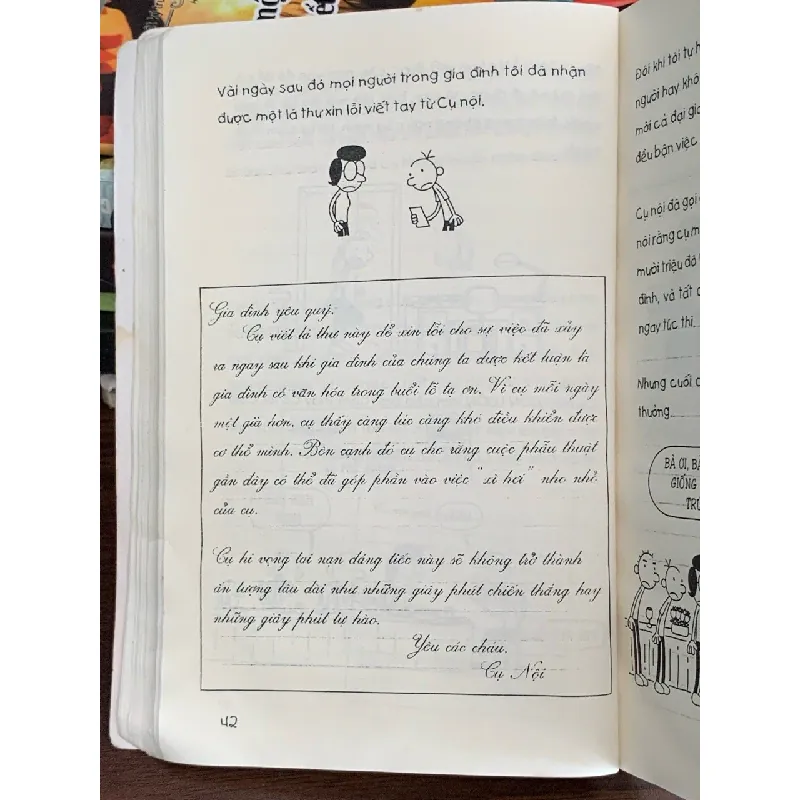 Vài ngày sau đó mọi người trong gia đình tôi đã nhận
được một lá thư xin lỗi viết tay từ Cụ nội.
Gia đình yêu quý.
Cụ viết lá thư này để xin lỗi cho sự việc đã xảy
ra ngay sau khi gia đình của chúng ta được kết luận là
gia đình có văn hóa trong buổi lễ tạ ơn. Vì cụ mỗi ngày
một già hơn, cụ thấy càng lúc càng khó điều khiển được
cơ thể mình. Bên cạnh đó cụ cho rằng cuộc phẫu thuật
gần đây có thể đã góp phần vào việc "xì hơi" nho nhỏ
của cụ.
Cụ hi vọng tai nạn đáng tiếc này sẽ không trở thành
ấn tượng lâu dài như những giây phút chiến thắng hay
những giây phút tự hào.
Yêu các cháu.
Cụ Nội
42
Đôi khi tôi tự h
người hay khô
mời cả đại gia
đều bận việc
Cụ nội đã gọi
nói rằng cụ m
mười triệu đô
đình, và tất c
ngay tức thì.
Nhưng cuối c
thưởng
BÀ ƠI, BÀ
GIỐNG
TRÚ